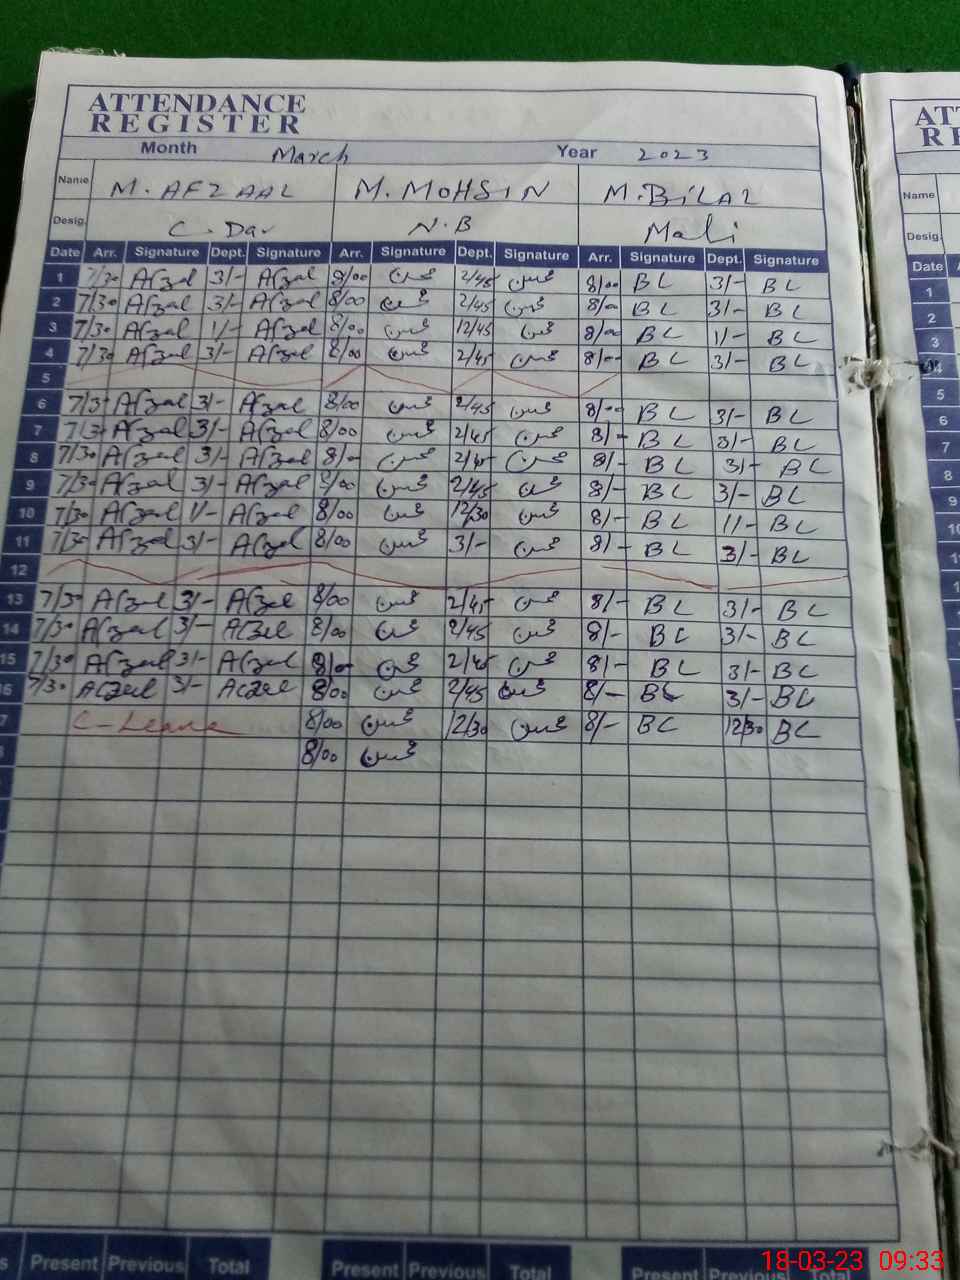 ATTENDANCE
REGISTER
Month March Year 2023
Name M. AFZAAL M. MOHSIN M. BiLAL
Desig. N.B Mali
Date Arr. Signature Dept. Signature Arr. Signature Dept. Signature Arr. Signature Dept. Signature
1 7/30 Afzal 3/- Afzal 8/00 محسن 2/45 محسن 8/00 BL 3/- BL
2 7/30 Afzal 3/- Afzal 8/00 محسن 2/45 محسن 8/00 BL 3/- BL
3 7/30 Afzal 1/- Afzal 8/00 محسن 12/45 محسن 8/00 BL 1/- BL
4 7/30 Afzal 3/- Afzal 8/00 محسن 2/45 محسن 8/00 BL 3/- BL
5
6 7/30 Afzal 3/- Afzal 8/00 محسن 2/45 محسن 8/00 BL 3/- BL
7 7/30 Afzal 3/- Afzal 8/00 محسن 2/45 محسن 8/- BL 3/- BL
8 7/30 Afzal 3/- Afzal 8/- محسن 2/45 محسن 8/- BL 3/- BL
9 7/30 Afzal 3/- Afzal 8/00 محسن 2/45 محسن 8/- BL 3/- BL
10 7/30 Afzal 1/- Afzal 8/00 محسن 12/30 محسن 8/- BL 1/- BL
11 7/30 Afzal 3/- Afzal 8/00 محسن 3/- محسن 8/- BL 3/- BL
12
13 7/30 Afzal 3/- Afzal 8/00 محسن 2/45 محسن 8/- BL 3/- BL
14 7/30 Afzal 3/- Afzal 8/00 محسن 2/45 محسن 8/- BL 3/- BL
15 7/30 Afzal 3/- Afzal 8/- محسن 2/45 محسن 8/- BL 3/- BL
16 7/30 Afzal 3/- Afzal 8/00 محسن 2/45 محسن 8/- BL 3/- BL
7 C-Leave 8/00 محسن 12/30 محسن 8/- BL 12/30 BL
8/00 محسن
Present Previous Total Present Previous Total Present Previous Total
Name
Desig.
Date
1
2
3
4
5
6
7
8
9
10
11
18-03-23 09:33